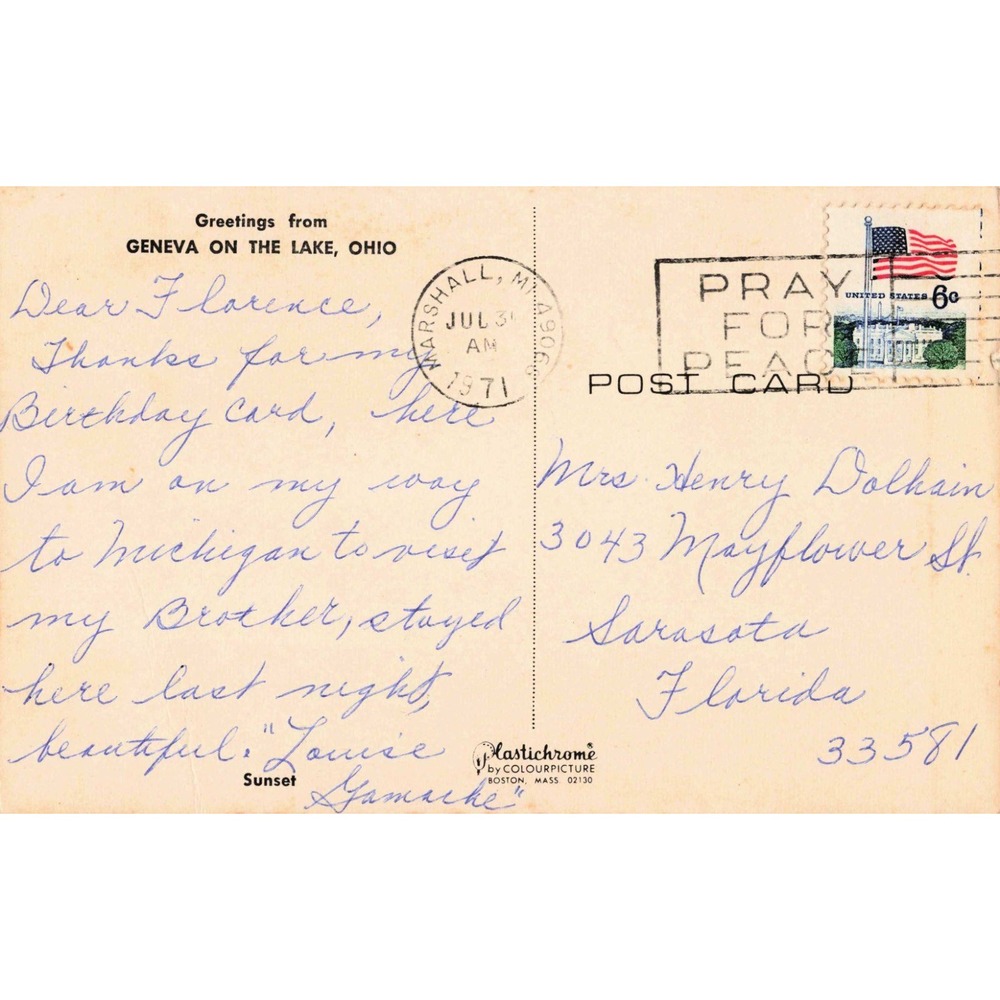 Greetings from
GENEVA ON THE LAKE, OHIO
Dear Florence,
Thanks for my
Birthday card, here
I am on my way
to Michigan to visit
my Brother, stayed
here last night,
beautiful. "Louise
Gamache"
Sunset
Plastichrome®
by COLOURPICTURE
BOSTON, MASS. 02130
MARSHALL, MI. 4906
JUL 3
AM
1971
PRAY
FOR
PEACE
UNITED STATES 6c
POST CARD
Mrs. Henry Dolhain
3043 Mayflower St.
Sarasota
Florida
33581